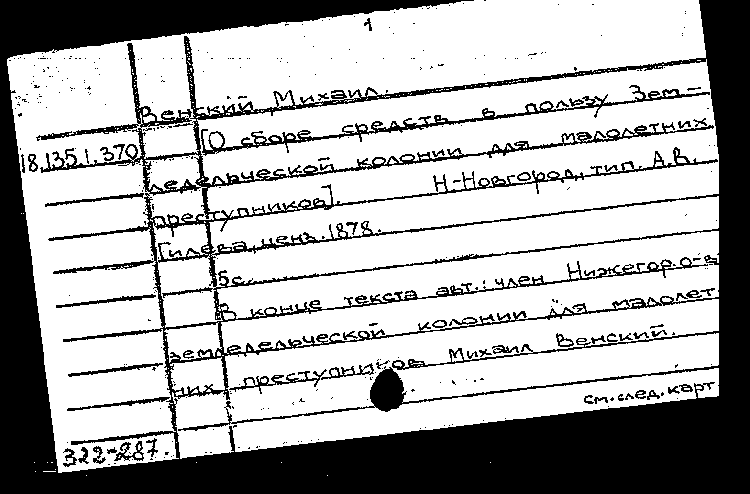 1
Венский, Михаил.
18.135.1.370 [О сборе средств в пользу Зем-
ледельческой колонии для малолетних
преступников]. Н-Новгород, тип. А.В.
Гилева, ценз. 1878.
5с.
В конце текста авт.: член Нижегор. о-в
земледельческой колонии для малолет
них преступников Михаил Венский.
см. след. карт
322-287.